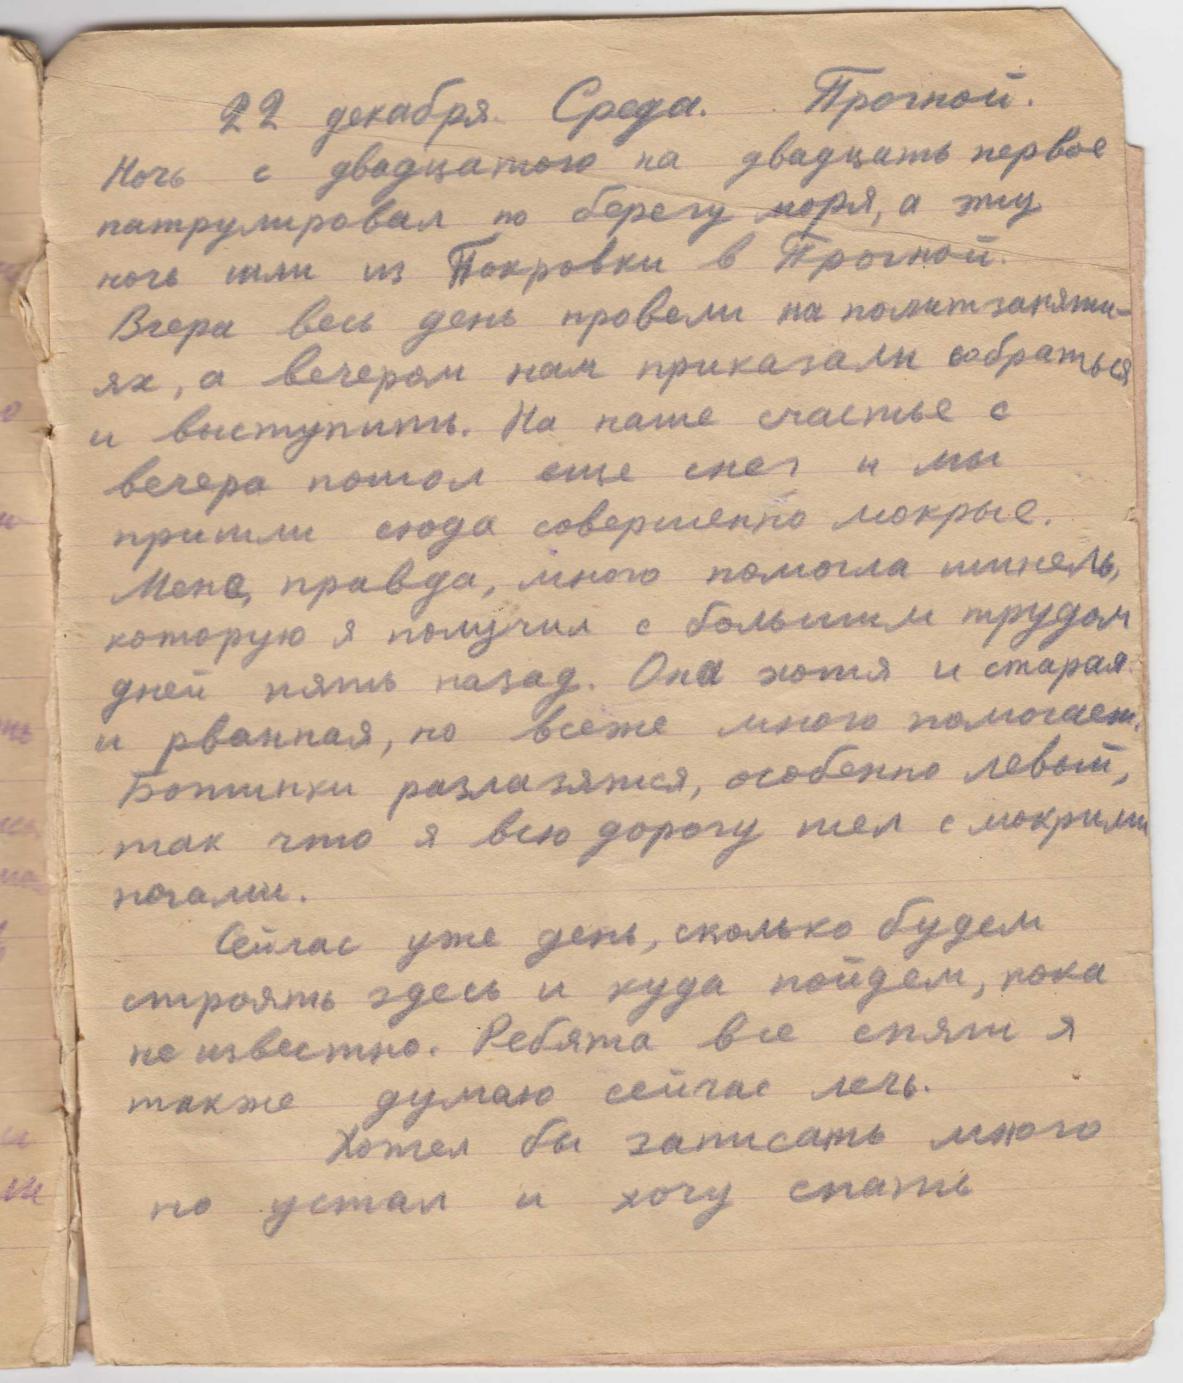 22 декабря. Среда. Прогной.
Ночь с двадцатого на двадцать первое
патрулировал по берегу моря, а эту
ночь шли из Покровки в Прогной.
Вчера весь день провели на политзаняти-
ях, а вечером нам приказали собраться
и выступить. На наше счастье с
вечера пошол еще снег и мы
пришли сюда совершенно мокрые.
Мене, правда, много помогла шинель,
которую я получил с большим трудом
дней пять назад. Она хотя и старая
и рванная, но всеже много помогает.
Ботинки разлазятся, особенно левый,
так что я всю дорогу шел с мокрыми
ногами.
Сейчас уже день, сколько будем
строять здесь и куда пойдем, пока
не известно. Ребята все спят и я
также думаю сейчас лечь.
Хотел бы записать много
но устал и хочу спать